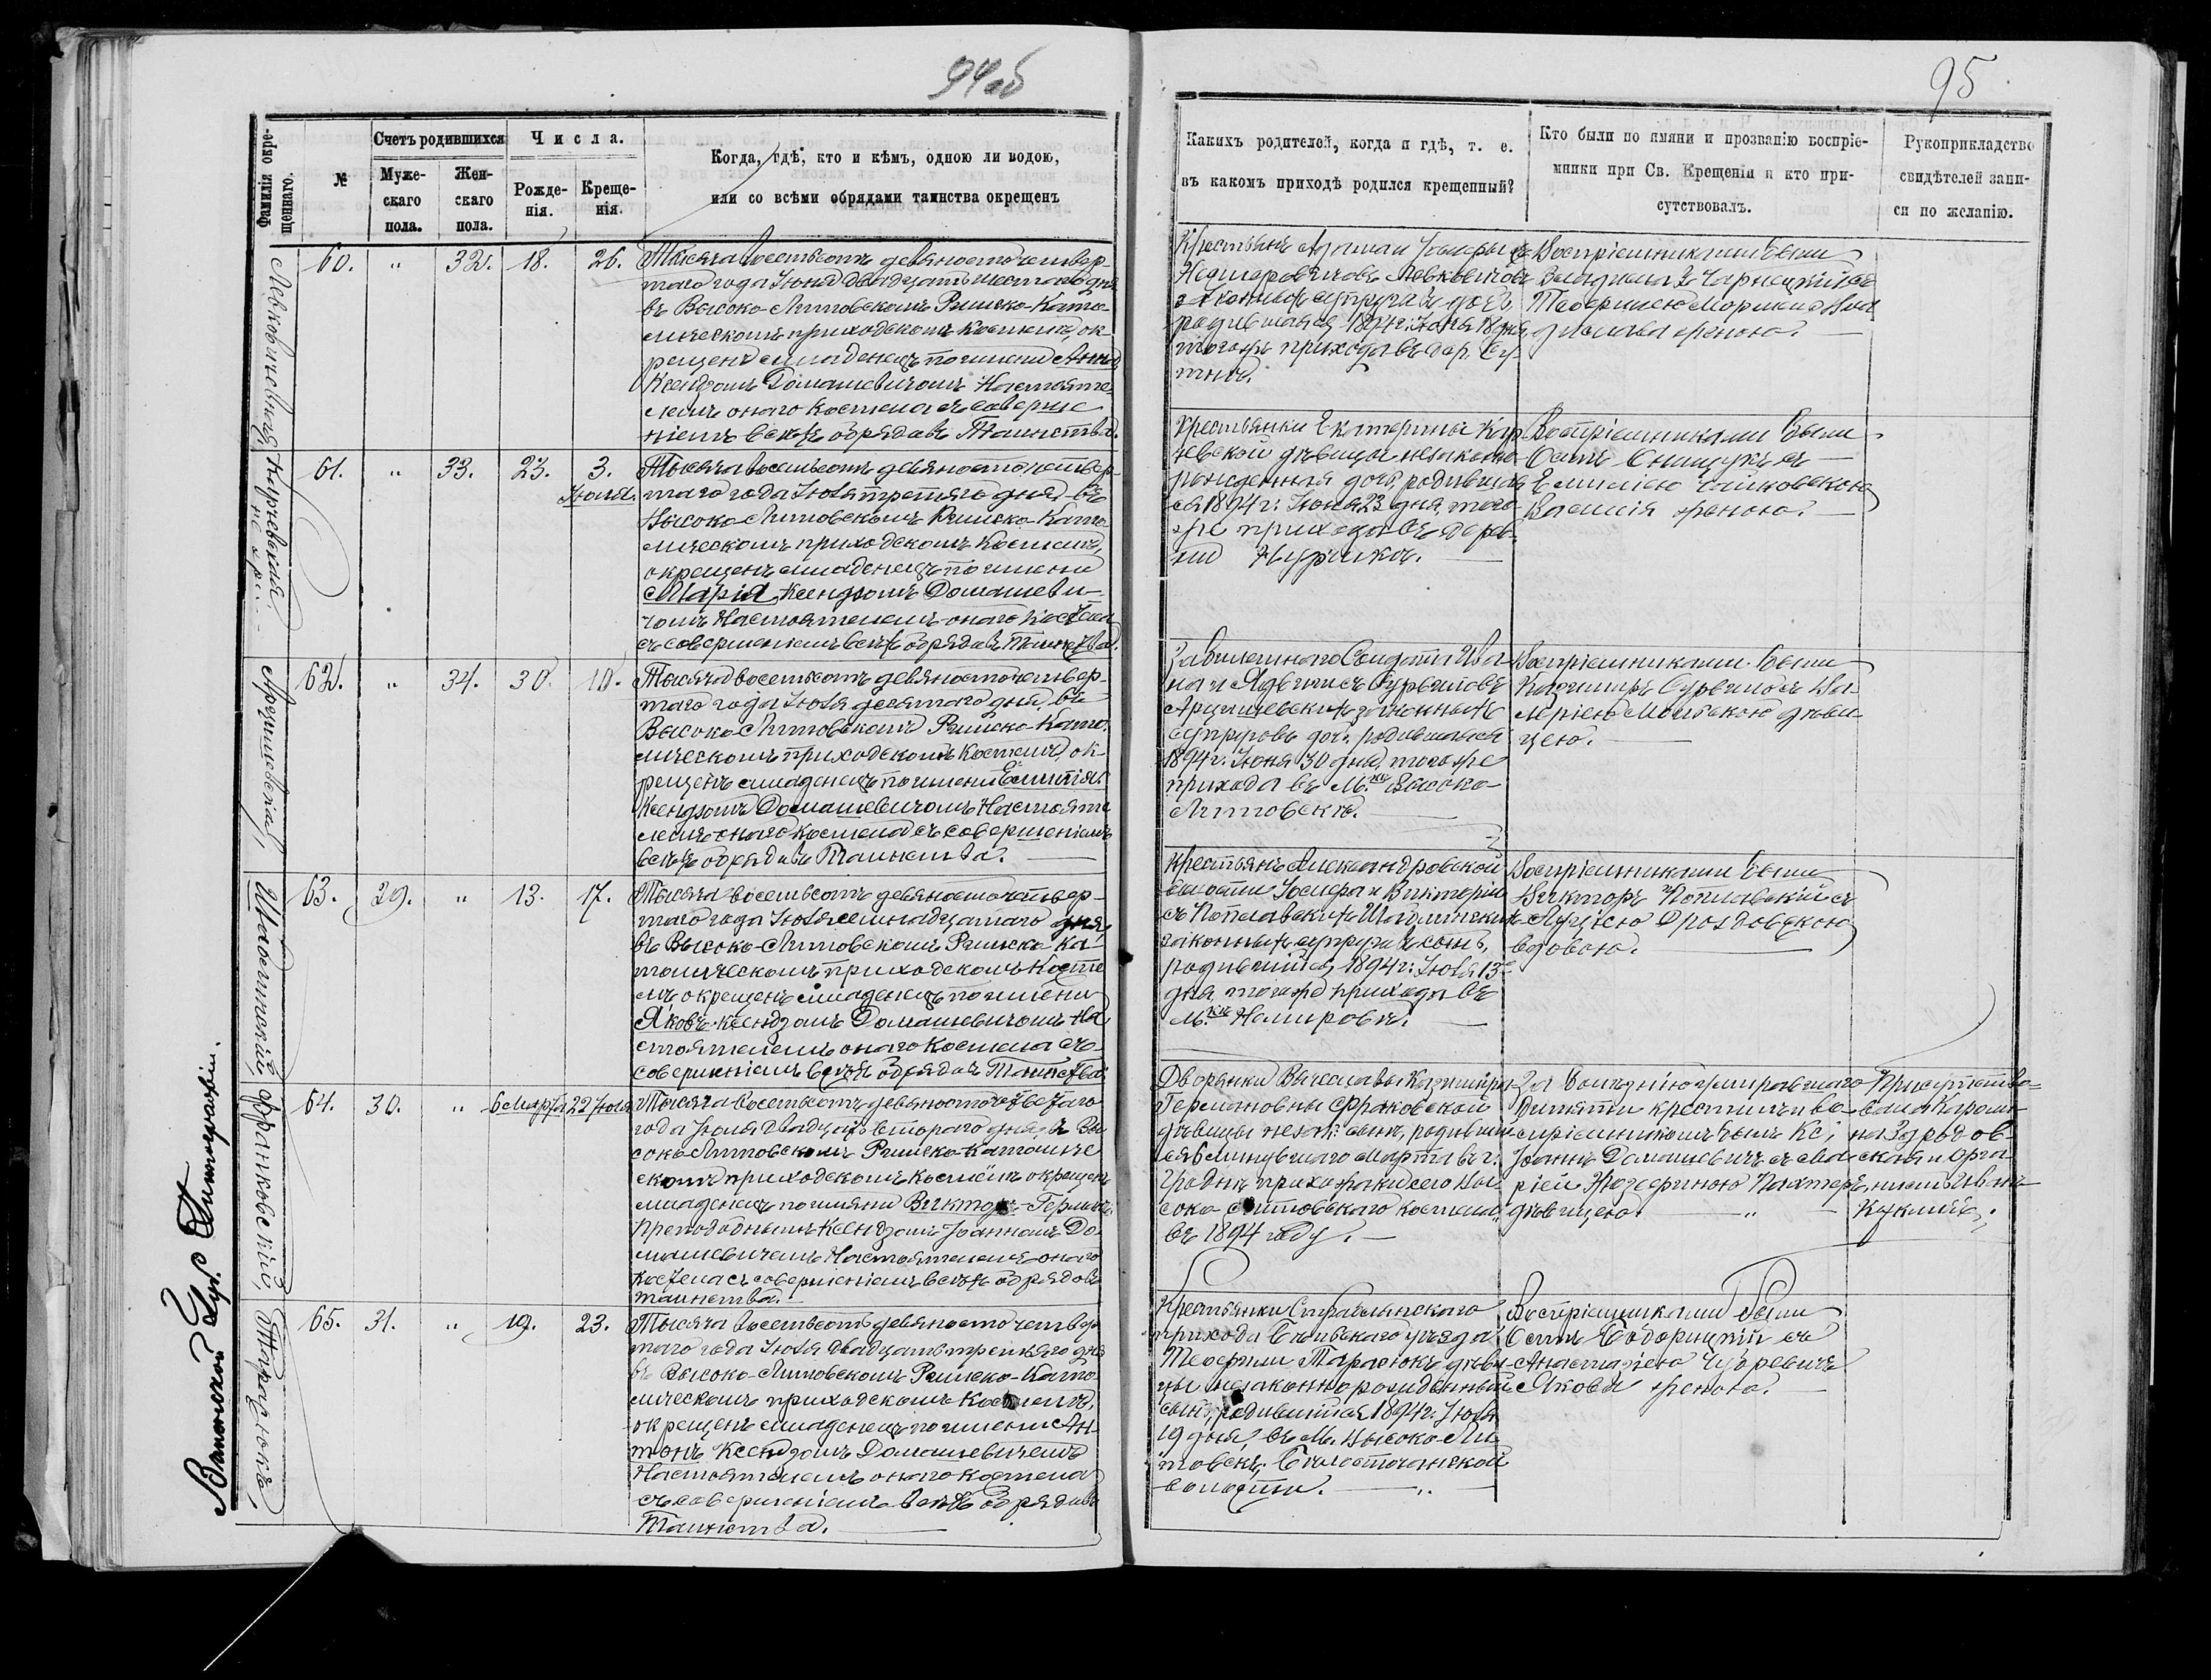 94об
95
Фамилія окре-
щеннаго.
№
Счетъ родившихся
Муже-
скаго
пола.
Жен-
скаго
пола.
Числа.
Рожде-
нія.
Креще-
нія.
Когда, гдѣ, кто и кѣмъ, одною ли водою,
или со всѣми обрядами таинства окрещенъ
Каких родителей, когда и гдѣ, т. е.
въ какомъ приходѣ родился крещенный?
Кто были по имяни и прозванію воспріе-
мники при Св. Крещеніи и кто при-
сутствовалъ.
Рукоприкладство
свидѣтелей запи-
си по желанію.
60. " 32. 18. 26.
Тысяча восемьсотъ девяносто четвер-
таго года Іюня двадцать шестаго дня
въ Высоко-Литовскомъ Римско-Като-
лическомъ приходскомъ Костелѣ, ок-
рещенъ младенецъ по имени Анна
Ксендзомъ Домашевичомъ Настояте-
лемъ онаго Костела съ соверше-
ніемъ всѣхъ обрядовъ Таинства.
законныхъ супруговъ дочь
родившаяся 1894 г: Іюня 18 дня
того же прихода въ дер.
Воспріемниками были
61. " 33. 23. 3.
Іюля.
Тысяча восемьсотъ девяносто четвер-
таго года Іюля третяго дня въ
Высоко-Литовскомъ Римско-Като-
лическомъ приходскомъ Костелѣ,
окрещенъ младенецъ по имени
Марія Ксендзомъ Домашеви-
чомъ Настоятелемъ онаго Костела
съ совершеніемъ всѣхъ обрядовъ Таинства.
Крестьянки Екатерины Кар-
чевской дѣвицы незаконно-
рожденная дочь, родившая-
ся 1894 г: Іюня 23 дня, того-
же прихода въ дерев-
ни
Воспріемниками были
Осипъ Онищукъ съ
Емиліею Чайковскою
Василія женою.
Арцишевская,
62. " 34. 30. 10.
Тысяча восемьсотъ девяносто четвер-
таго года Іюля десятаго дня, въ
Высоко-Литовскомъ Римско-Като-
лическомъ приходскомъ Костелѣ, ок-
рещенъ младенецъ по имени Емилія
Ксендзомъ Домашевичомъ Настояте-
лемъ онаго Костела съ совершеніемъ
всѣхъ обрядовъ Таинства.
Солдата Ива-
на и Ядвиги съ
Арцишевскихъ законныхъ
супруговъ доч. родившаяся
1894 г. Іюня 30 дня, того же
прихода въ М.кѣ Высоко-
Литовскѣ.
Воспріемниками были
Казимиръ съ Ва-
леріею дѣви-
цею.
63. 29. " 13. 17.
Тысяча восемьсотъ девяносто четвер-
таго года Іюля семнадцатаго дня,
въ Высоко-Литовскомъ Римско-Ка-
толическомъ приходскомъ Косте-
лѣ окрещенъ младенецъ по имени
Яковъ Ксендзомъ Домашевичомъ На-
стоятелемъ онаго Костела съ
совершеніемъ всѣхъ обрядовъ Таинства.
Крестьянъ Александровской
волости Іосифа и Викторіи
съ Поплавскихъ
законныхъ супруговъ сынъ,
родившійся 1894 г: Іюля 13
дня того же прихода въ
М.кѣ Немировѣ.
Воспріемниками были
Викторъ Поплавскій съ
Луціею Дроздовскою
вдовою.
Франковскій,
64. 30. " 6 Марта 22 Іюля
Тысяча восемьсотъ девяносто
года Іюля двадцать втораго дня въ Вы-
соко-Литовскомъ Римско-Католиче-
скомъ приходскомъ Костелѣ окрещенъ
младенецъ по имяни Викторъ-
Преподобнымъ Ксендзомъ Іоанномъ До-
машевичемъ Настоятелемъ онаго
Костела съ совершеніемъ всѣхъ обрядовъ
таинства.
Дворянки
Франковской
дѣвицы незак: сынъ, родивший-
ся 6 минувшаго Марта въ г.
Гродни, прихожанки сего Вы-
соко-Литовскаго костела
въ 1894 году.
дитяти крестилъ и во-
спріемникомъ былъ Кс:
Іоаннъ Домашевичъ съ Ма-
ріей Жозефиною
дѣвицею. "
Присутство-
вала Кароли-
на Здродов-
ская и Орга-
нистъ Иванъ
65. 31. " 19. 23.
Тысяча восемьсотъ девяносто четвер-
таго года Іюля двадцать третьяго дня
въ Высоко-Литовскомъ Римско-Като-
лическомъ приходскомъ Костелѣ,
окрещенъ младенецъ по имени Ан-
тонъ Ксендзомъ Домашевичемъ
Настоятелемъ онаго костела
съ совершеніемъ всѣхъ обрядовъ
Таинства.
Крестьянки
прихода Бѣльскаго уѣзда
Теофили Тарасюкъ дѣви-
цы незаконнорожденный
сынъ, родившійся 1894 г: Іюля
19 дня, въ М. Высоко-Ли-
товскѣ,
волости. "
Воспріемниками были
Осипъ съ
Анастазіею
Якова женою.
Виленской Губ. Типографіи.